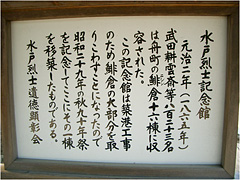 水戸烈士記念館
元治二年(一八六五年)
武田耕雲斎等八百二十三名
は舟町の鯡倉十六棟に収
容された。
この記念館は築港工事
のため鯡倉の大部分を取
りこわすことになったので
昭和二十九年の秋九十年祭
を記念してこゝにその一棟
を移築したものである。
水戸烈士遺徳顕彰会